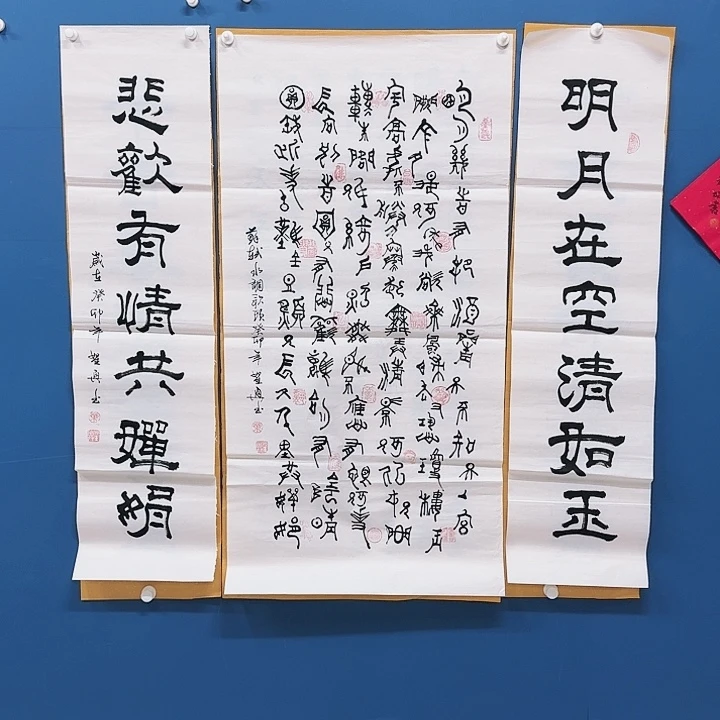 明月在空清如玉
明月幾時有把酒問青天不知天上宮
闕今夕是何年我欲乘風歸去又恐瓊樓玉
宇高處不勝寒起舞弄清影何似在人間
轉朱閣低綺戶照無眠不應有恨何事
長向別時圓人有悲歡離合月有陰晴
圓缺此事古難全但願人長久千里共嬋娟
蘇軾水調歌頭癸卯年
悲歡有情共嬋娟
歲在癸卯年